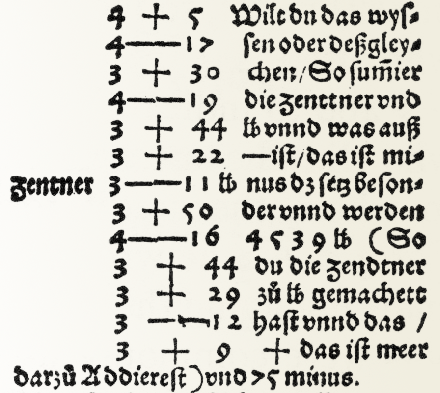 4 + 5 Wilt du das wys⸗
4 — 17 sen oder deßgley⸗
3 + 30 chen / So sumier
4 — 19 die zenttner vnd
3 + 44 lb vnnd was auß
3 + 22 — ist / das ist mi⸗
zentner 3 — 11 lb nus dz setz beson⸗
3 + 50 der vnnd werden
4 — 16 4539 lb (So
3 + 44 du die zendtner
3 + 29 zů lb gemachett
3 — 12 hast vnnd das /
3 + 9 + das ist meer
darzů Addierest) vnd 75 minus.